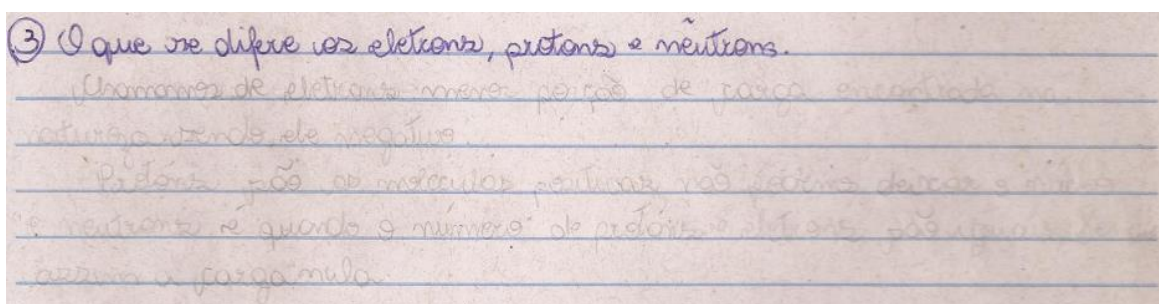 ③ O que se difere os eletrons, protons e nêutrons.
Chamamos de eletrons menor porção de carga encontrada na
natureza sendo ele negativo.
Protons são as moléculas positivas não
e neutrons é quando o número de protons e eletrons são iguais
assim a carga nula.